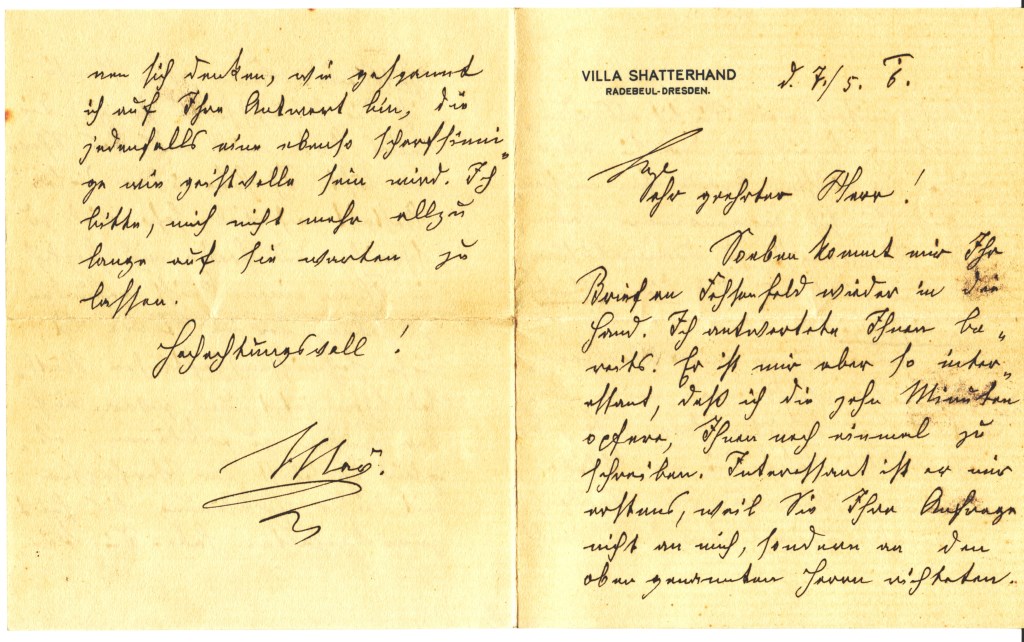 VILLA SHATTERHAND
RADEBEUL-DRESDEN.
d. 7/5. 6.
Sehr geehrter Herr!
Soeben kommt mir Ihr
Brief an Fehsenfeld wieder in die
Hand. Ich antwortete Ihnen be-
reits. Er ist mir aber so inter-
essant, daß ich die zehn Minuten
opfere, Ihnen noch einmal zu
schreiben. Interessant ist er mir
erstens, weil Sie Ihre Anfrage
nicht an mich, sondern an den
oben genannten Herrn richteten.
nen sich denken, wie gespannt
ich auf Ihre Antwort bin, die
jedenfalls eine ebenso scharfsinni-
ge wie geistvolle sein wird. Ich
bitte, mich nicht mehr allzu
lange auf sie warten zu
lassen.
Hochachtungsvoll!
May.